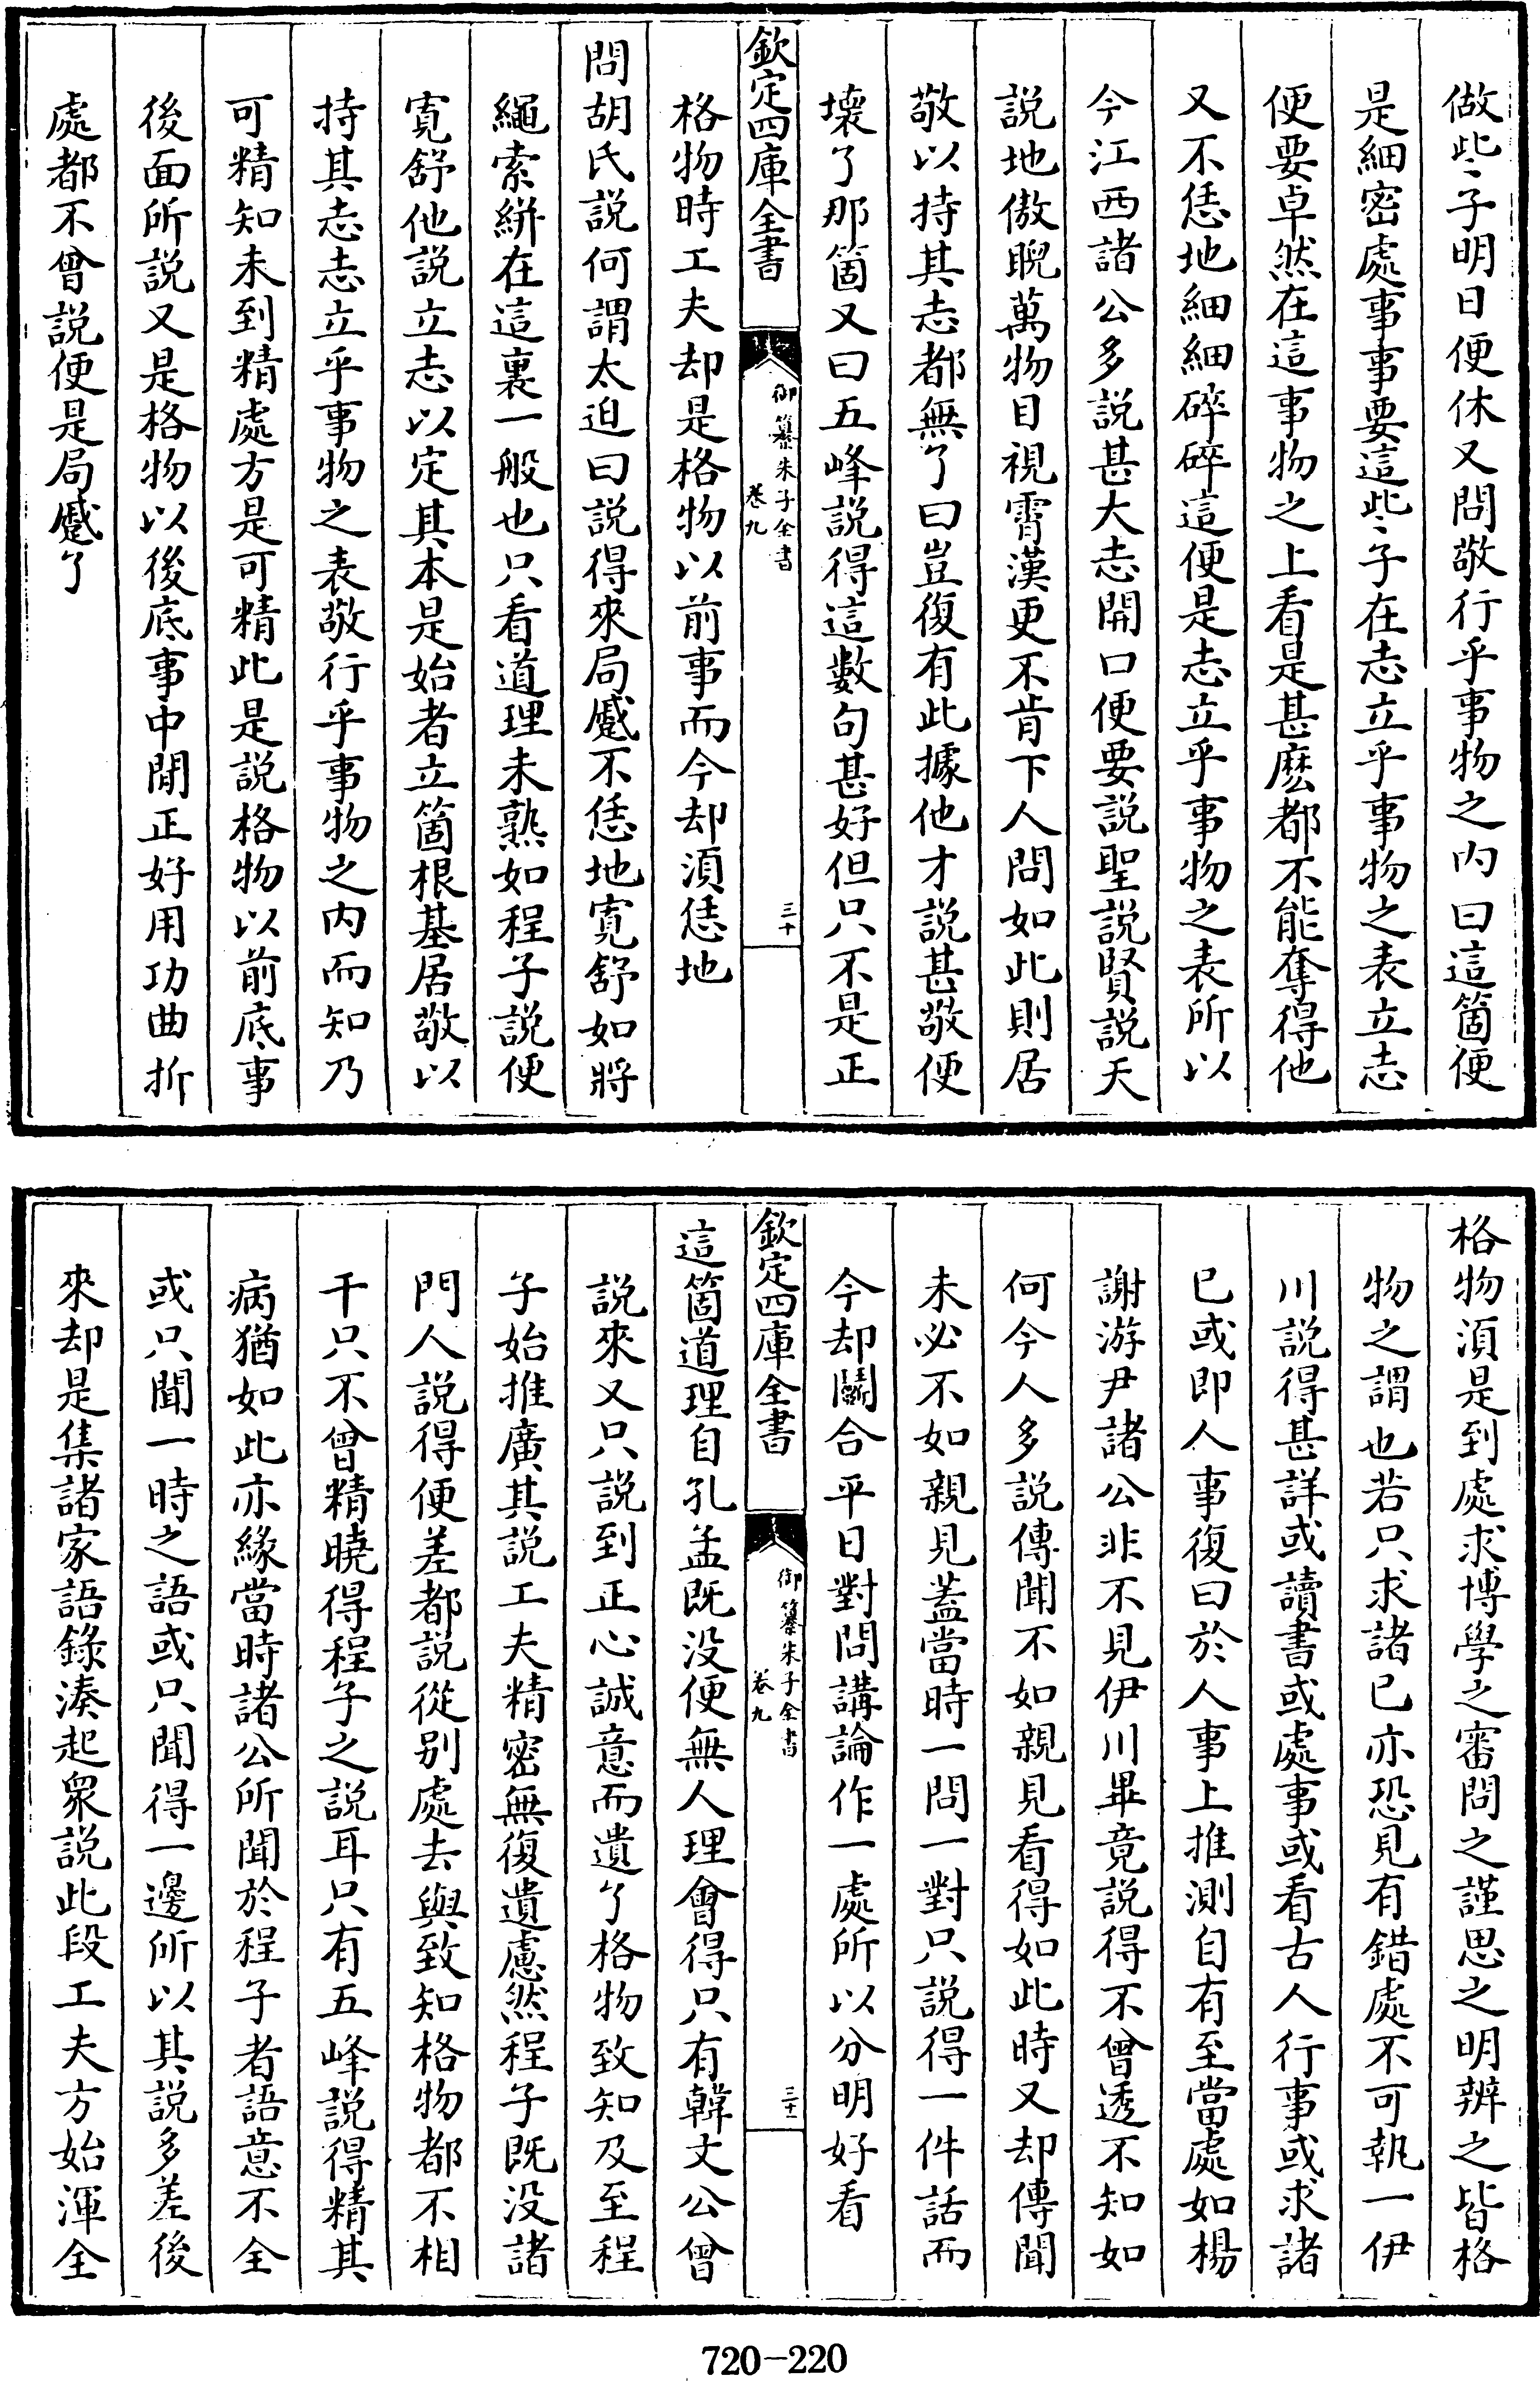 做些子明日便休又問敬行乎事物之内曰這箇便
是細密處事事要這些子在志立乎事物之表立志
便要卓然在這事物之上看是甚麽都不能奪得他
又不恁地細細碎碎這便是志立乎事物之表所以
今江西諸公多説甚大志開口便要説聖説賢説天
説地傲睨萬物目視霄漢更不肯下人問如此則居
敬以持其志都無了曰豈復有此據他才説甚敬便
壞了那箇又曰五峰説得這數句甚好但只不是正
欽定四庫全書
御纂朱子全書
卷九
三十
格物時工夫却是格物以前事而今却須恁地
問胡氏説何謂太迫曰説得來局蹙不恁地寛舒如將
繩索絣在這裏一般也只看道理未熟如程子説便
寛舒他説立志以定其本是始者立箇根基居敬以
持其志志立乎事物之表敬行乎事物之内而知乃
可精知未到精處方是可精此是説格物以前底事
後面所説又是格物以後底事中間正好用功曲折
處都不曾説便是局蹙了
格物須是到處求博學之審問之謹思之明辨之皆格
物之謂也若只求諸已亦恐見有錯處不可執一伊
川説得甚詳或讀書或處事或看古人行事或求諸
已或即人事復曰於人事上推測自有至當處如楊
謝游尹諸公非不見伊川畢竟説得不曾透不知如
何今人多説傳聞不如親見看得如此時又却傳聞
未必不如親見蓋當時一問一對只説得一件話而
今却鬭合平日對問講論作一處所以分明好看
欽定四庫全書
御纂朱子全書
卷九
三十一
這箇道理自孔孟既没便無人理會得只有韓文公曾
説來又只説到正心誠意而遺了格物致知及至程
子始推廣其説工夫精密無復遺慮然程子既没諸
門人説得便差都説從别處去與致知格物都不相
干只不曾精曉得程子之説耳只有五峰説得精其
病猶如此亦緣當時諸公所聞於程子者語意不全
或只聞一時之語或只聞得一邊所以其説多差後
來却是集諸家語錄湊起衆説此段工夫方始渾全
720-220